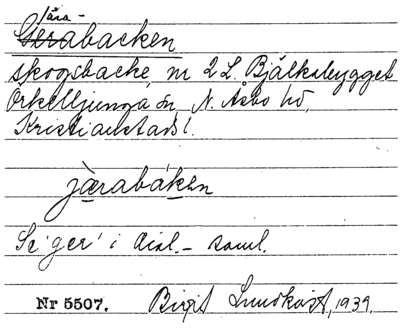 Jära-
Gerabacken
skogsbacke, nr 2 L. Bjälkabygget
Örkelljunga sn, N. Åsbo hd,
Kristianstads l.
jæ̀rabáken
Se 'ger' i dial.- saml.
Nr 5507. Birgit Lundkvist, 1939.